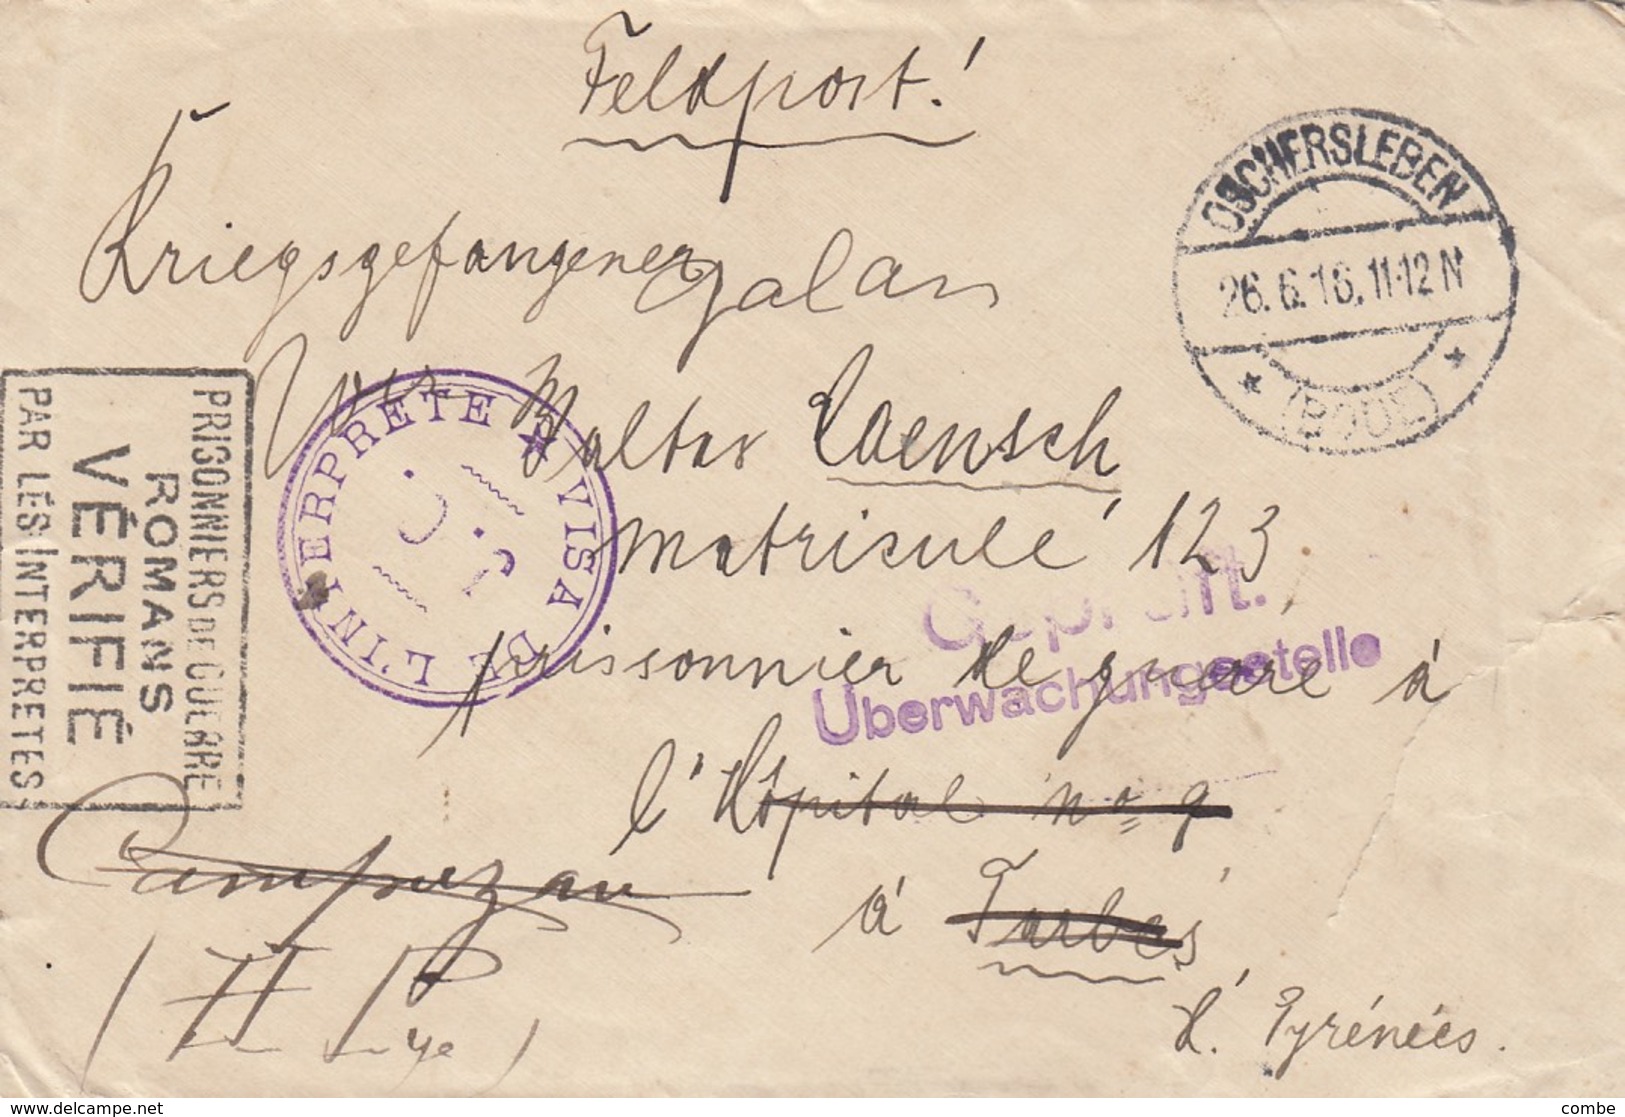 Feldpost!
OSCHERSLEBEN
26.6.16.11-12N
(BODE)
Kriegsgefangener
Galan
Walter Laensch
matriculé 123
prissonnier de guerre á
l'Hôpital no 9
á Tarbes
H. Pyrénées.
Campuzan
(H Pyr)
PRISONNIERS DE GUERRE
ROMANS
VÉRIFIÉ
PAR LES INTERPRETES
VISA DE L'INTERPRETE
Geprüft.
Überwachungsstelle
www.delcampe.net
combe